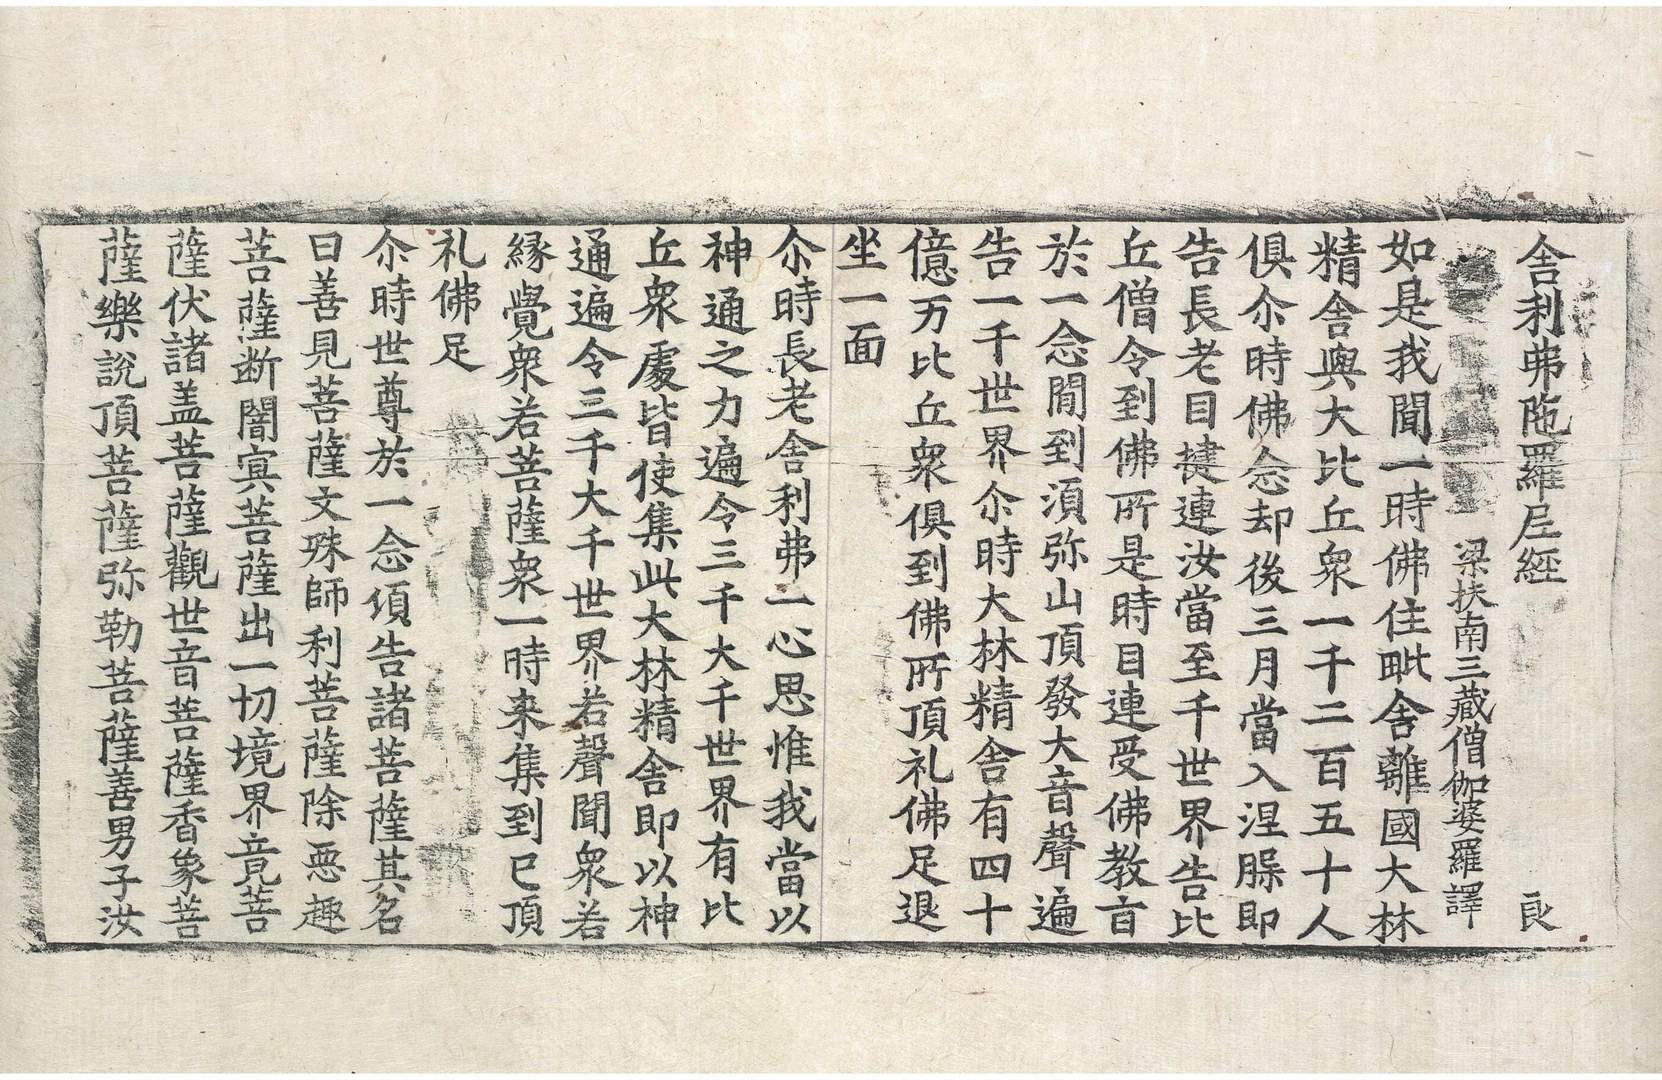 舍利弗陁羅尼經 良
梁扶南三藏僧伽婆羅譯
如是我聞一時佛住毗舍離國大林
精舍與大比丘衆一千二百五十人
俱尒時佛念却後三月當入涅槃即
告長老目揵連汝當至千世界告比
丘僧令到佛所是時目連受佛教言
於一念間到須弥山頂發大音聲遍
告一千世界尒時大林精舍有四十
億万比丘衆俱到佛所頂礼佛足退
坐一面
尒時長老舍利弗一心思惟我當以
神通之力遍令三千大千世界有比
丘衆處皆使集此大林精舍即以神
通遍令三千大千世界若聲聞衆若
緣覺衆若菩薩衆一時來集到已頂
礼佛足
尒時世尊於一念頃告諸菩薩其名
曰善見菩薩文殊師利菩薩除惡趣
菩薩断闇冥菩薩出一切境界竟菩
薩伏諸盖菩薩觀世音菩薩香象菩
薩樂說頂菩薩弥勒菩薩善男子汝